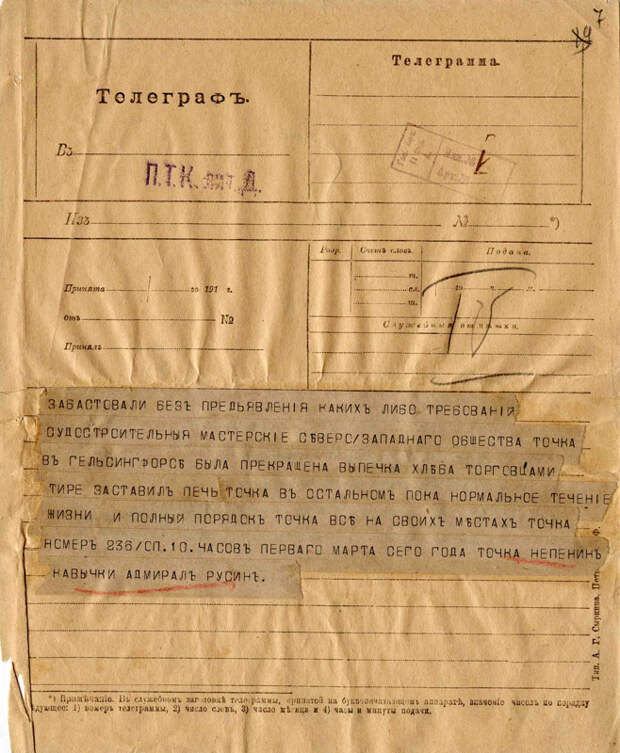 7
Телеграфъ.
Телеграмма.
Въ
П.Т.К. лит. Д.
Изъ № *)
Разр. Счетъ словъ. Подача.
Принята го 191 г.
отъ №
Принялъ
гл.
сл.
Служебныя отмѣтки.
ЗАБАСТОВАЛИ БЕЗЪ ПРЕДЬЯВЛЕНІЯ КАКИХЪ ЛИБО ТРЕБОВАНІЙ
СУДОСТРОИТЕЛЬНЫЯ МАСТЕРСКІЕ СѢВЕРО/ЗАПАДНАГО ОБЩЕСТВА ТОЧКА
ВЪ ГЕЛЬСИНГФОРСѢ БЫЛА ПРЕКРАЩЕНА ВЫПЕЧКА ХЛѢБА ТОРГОВЦАМИ
ТИРЕ ЗАСТАВИЛЪ ПЕЧЬ ТОЧКА ВЪ ОСТАЛЬНОМЪ ПОКА НОРМАЛЬНОЕ ТЕЧЕНІЕ
ЖИЗНИ И ПОЛНЫЙ ПОРЯДОКЪ ТОЧКА ВСѢ НА СВОИХЪ МѢСТАХЪ ТОЧКА
НОМЕРЪ 236/СП.10.ЧАСОВЪ ПЕРВАГО МАРТА СЕГО ГОДА ТОЧКА НЕПЕНИНЪ
КАВЫЧКИ АДМИРАЛЪ РУСИНЪ.
Тип. А. Г. Сыркина, Петр.
*) Примѣчаніе. Въ служебномъ заголовкѣ телеграммы, принятой на буквопечатающемъ аппаратѣ, значеніе чиселъ по порядку
слѣдующее: 1) номеръ телеграммы, 2) число словъ, 3) число мѣсяца и 4) часы и минуты подачи.